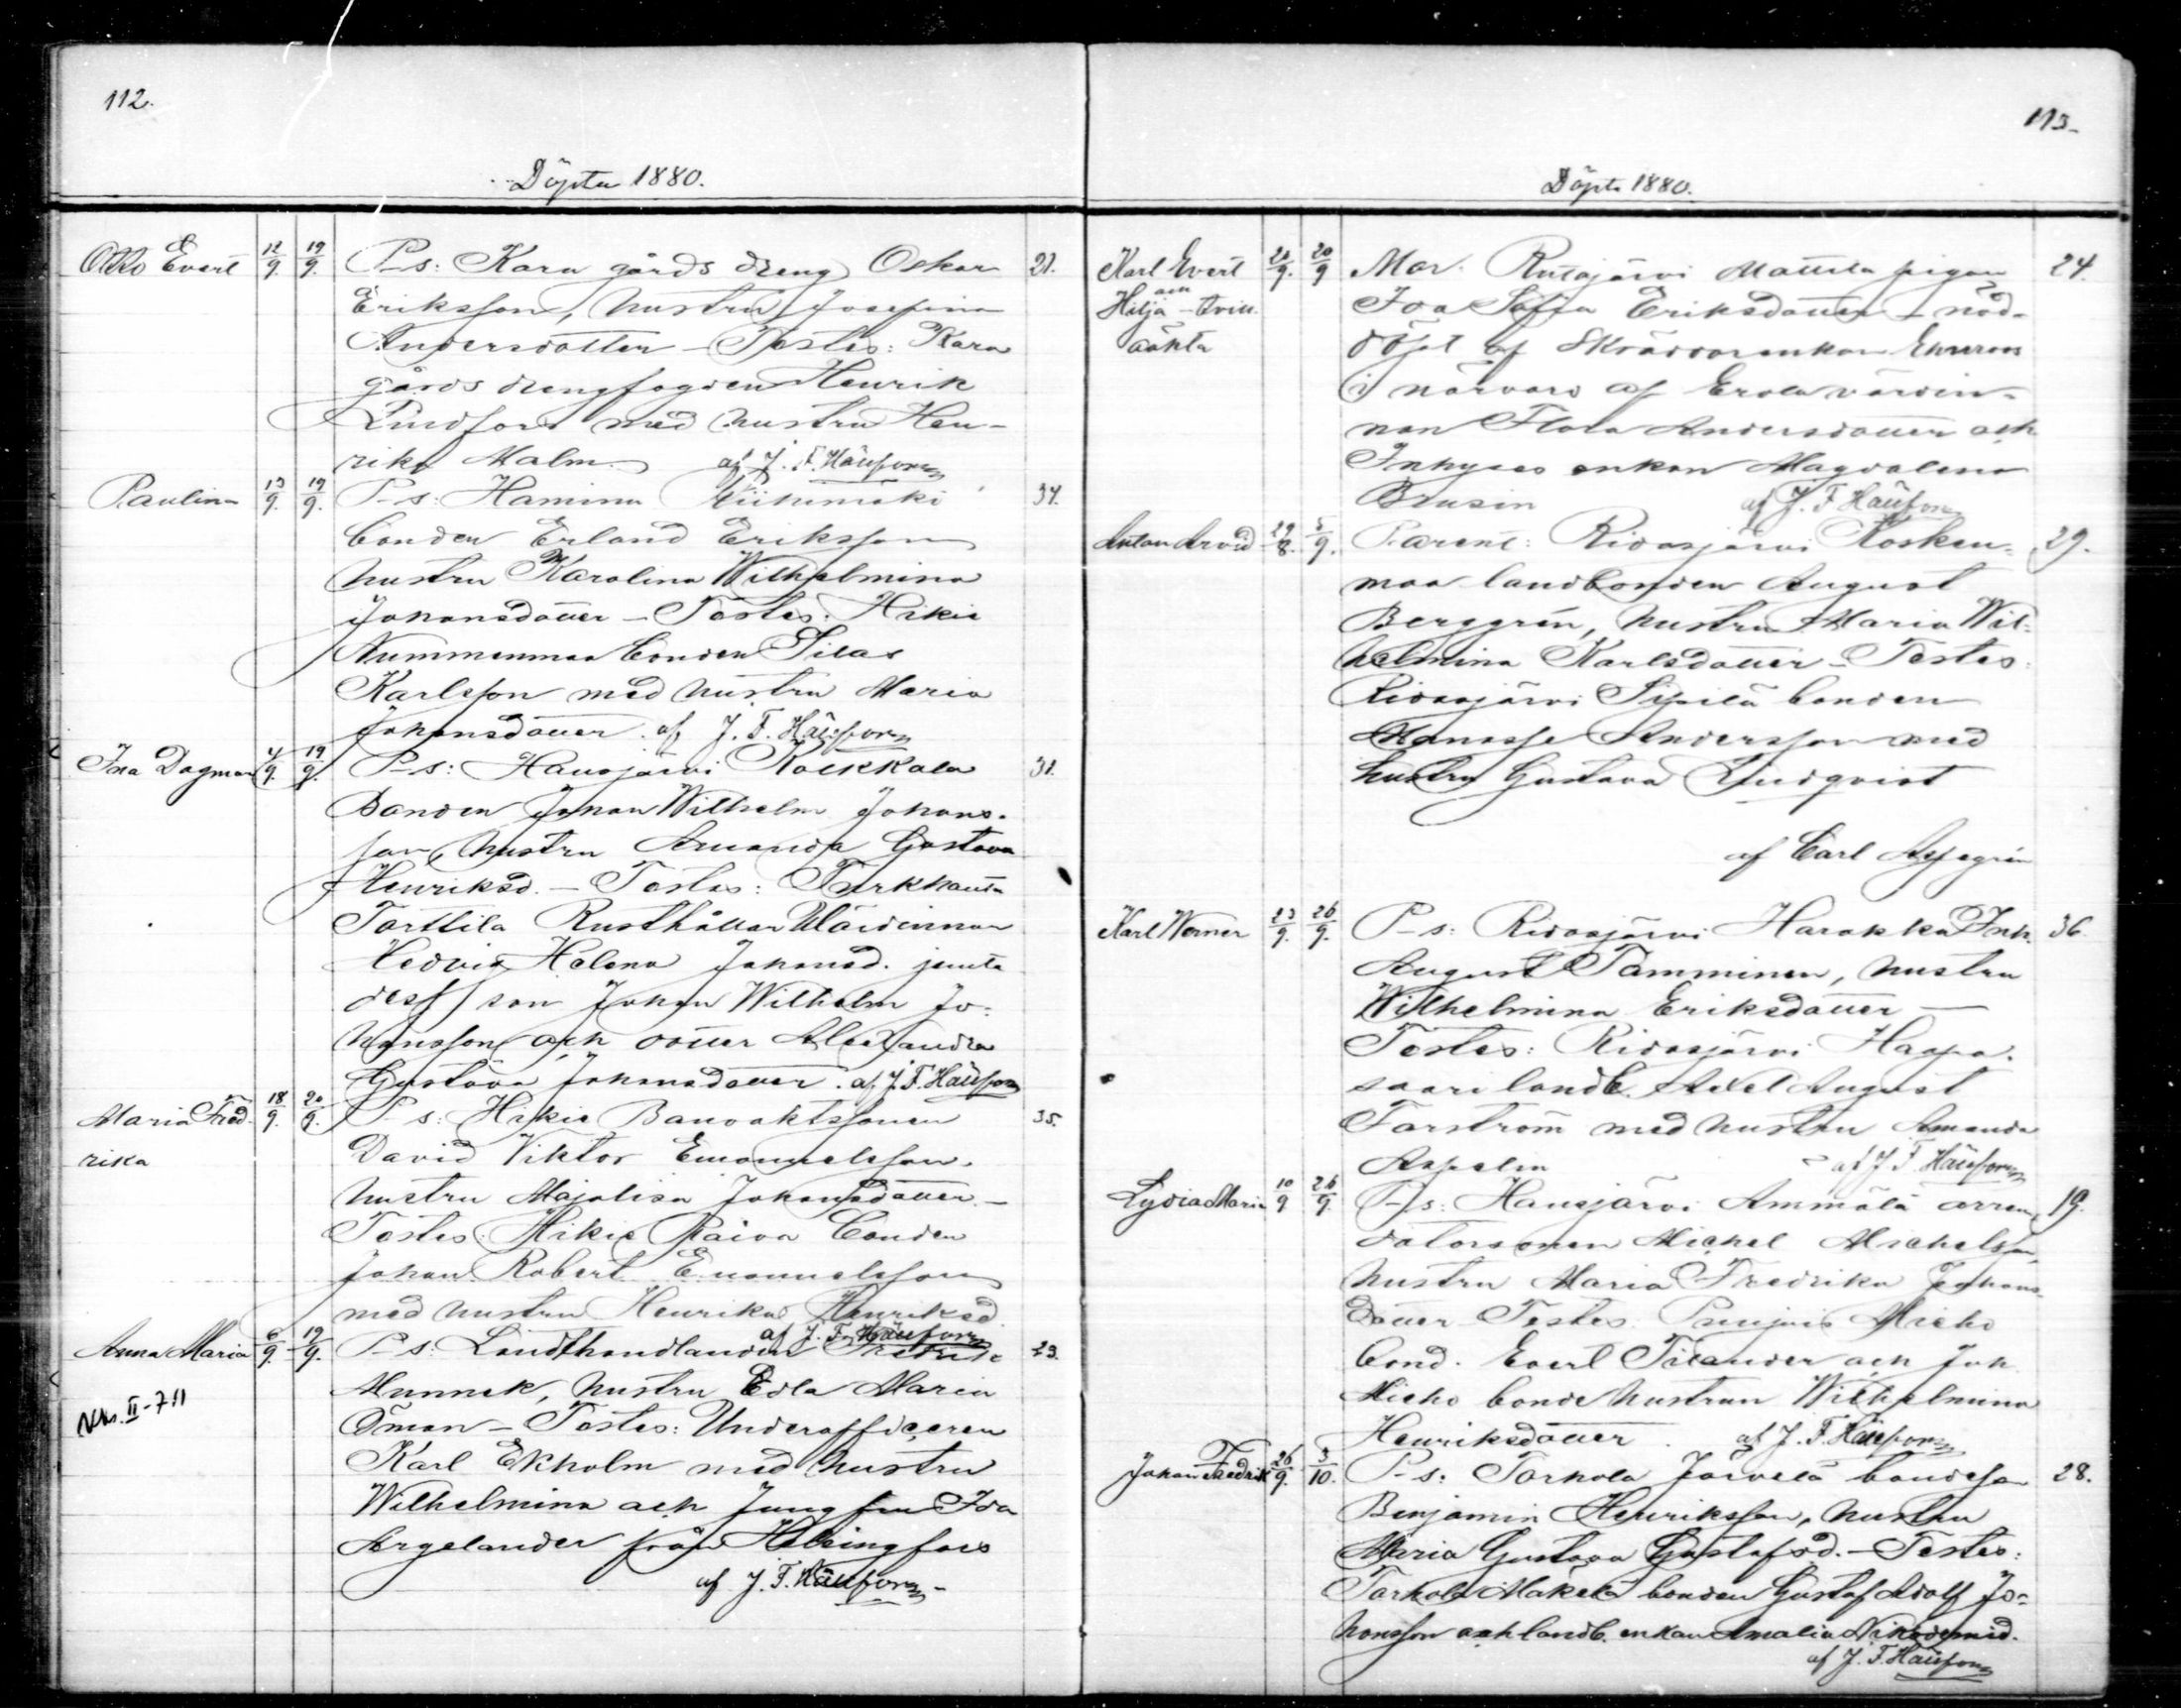 112.
Döpta 1880.
Otto Evert 12/9. 19/9. P-s: Kara gårds dreng Oskar 21.
Eriksson, hustru Josefina
Andersdotter - Testes: Kara
gårds drengfogden Henrik
Lindfors med hustru Hen-
rika Malm. af J. F.
Paulina 13/9. 19/9. P-s: Hamina Riihimäki 34.
bonden Erland Eriksson
hustru Karolina Wilhelmina
Johansdotter - Testes: Hikiä
Nummenmaa bonden Silas
Karlsson med hustru Maria
Johansdotter. af J. F.
Ina Dagmar 4/9. 19/9. P-s: Hausjärvi Kolkkala 31.
Bonden Johan Wilhelm Johans-
son, hustru Amanda Gustava
Henriksd. - Testes: Turkhauta
Torttila Rusthållar Wärdinnan
Hedvig Helena Johansd. jemte
dess son Johan Wilhelm Jo-
hansson och dotter Alexandra
Gustava Johansdotter. af J. F.
Maria Fred- 18/9. 20/9. P-s: Hikiä Banvaktssonen 35.
rika
David Viktor Emanuelsson,
hustru Majalisa Johansdotter -
Testes: Hikiä Raiva bonden
Johan Robert Emanuelsson
med hustru Henrika Henriksd.
af J. F.
Anna Maria 6/9. 19/9. P-s: Landthandlanden Fredrik 23.
Munnek, hustru Edla Maria
Öman - Testes: Underofficeren
Karl Ekholm med hustru
Wilhelmina och Jungfru Ida
Argelander från Helsingfors
af J. F.
II-711
113.
Döpta 1880.
Karl Evert 20/9. 20/9 Mor. Rutajärvi Mattila pigan 24.
och
Hilja - tvill.
oäkta
Ida Sofia Eriksdotter - nöd-
döpt af Skräddarenkan
i närvaro af Erola värdin-
nan Flora Andersdotter och
Inhyses enkan Magdalena
Brusin af J. F.
Anton Arvid 29/8. 5/9. Parent: Ridasjärvi Kosken- 29.
maa landbonden August
Berggrén, hustru Maria Wil-
helmina Karlsdotter - Testes:
Ridasjärvi Sipilä bonden
Manasse Andersson med
hustru Gustava Lindqvist
af Carl Aspegrén
Karl Werner 23/9. 26/9. P-s: Ridasjärvi Harakka Inh. 36.
August Tamminen, hustru
Wilhelmina Eriksdotter -
Testes: Ridasjärvi Haapa-
saari landb. Axel August
Forström med hustru Amanda
Aspelin af J. F.
Lydia Maria 10/9 26/9. P-s: Hausjärvi Ammälä arren- 19.
datorsonen Michel Michelsson,
hustru Maria Fredrika Johans-
dotter Testes: Micko
bond. Evert Tilander och Joh.
Micko bonde hustrun Wilhelmina
Henriksdotter. af J. F.
Johan Fredrik 26/9. 3/10. P-s: Torhola Järvelä bondeson 28.
Benjamin Henriksson, hustru
Maria Gustava Gustafsd. - Testes:
Torhola Mäkelä bonden Gustaf Adolf Jo-
hansson och landb. enkan Amalia Nikodemid.
af J. F.